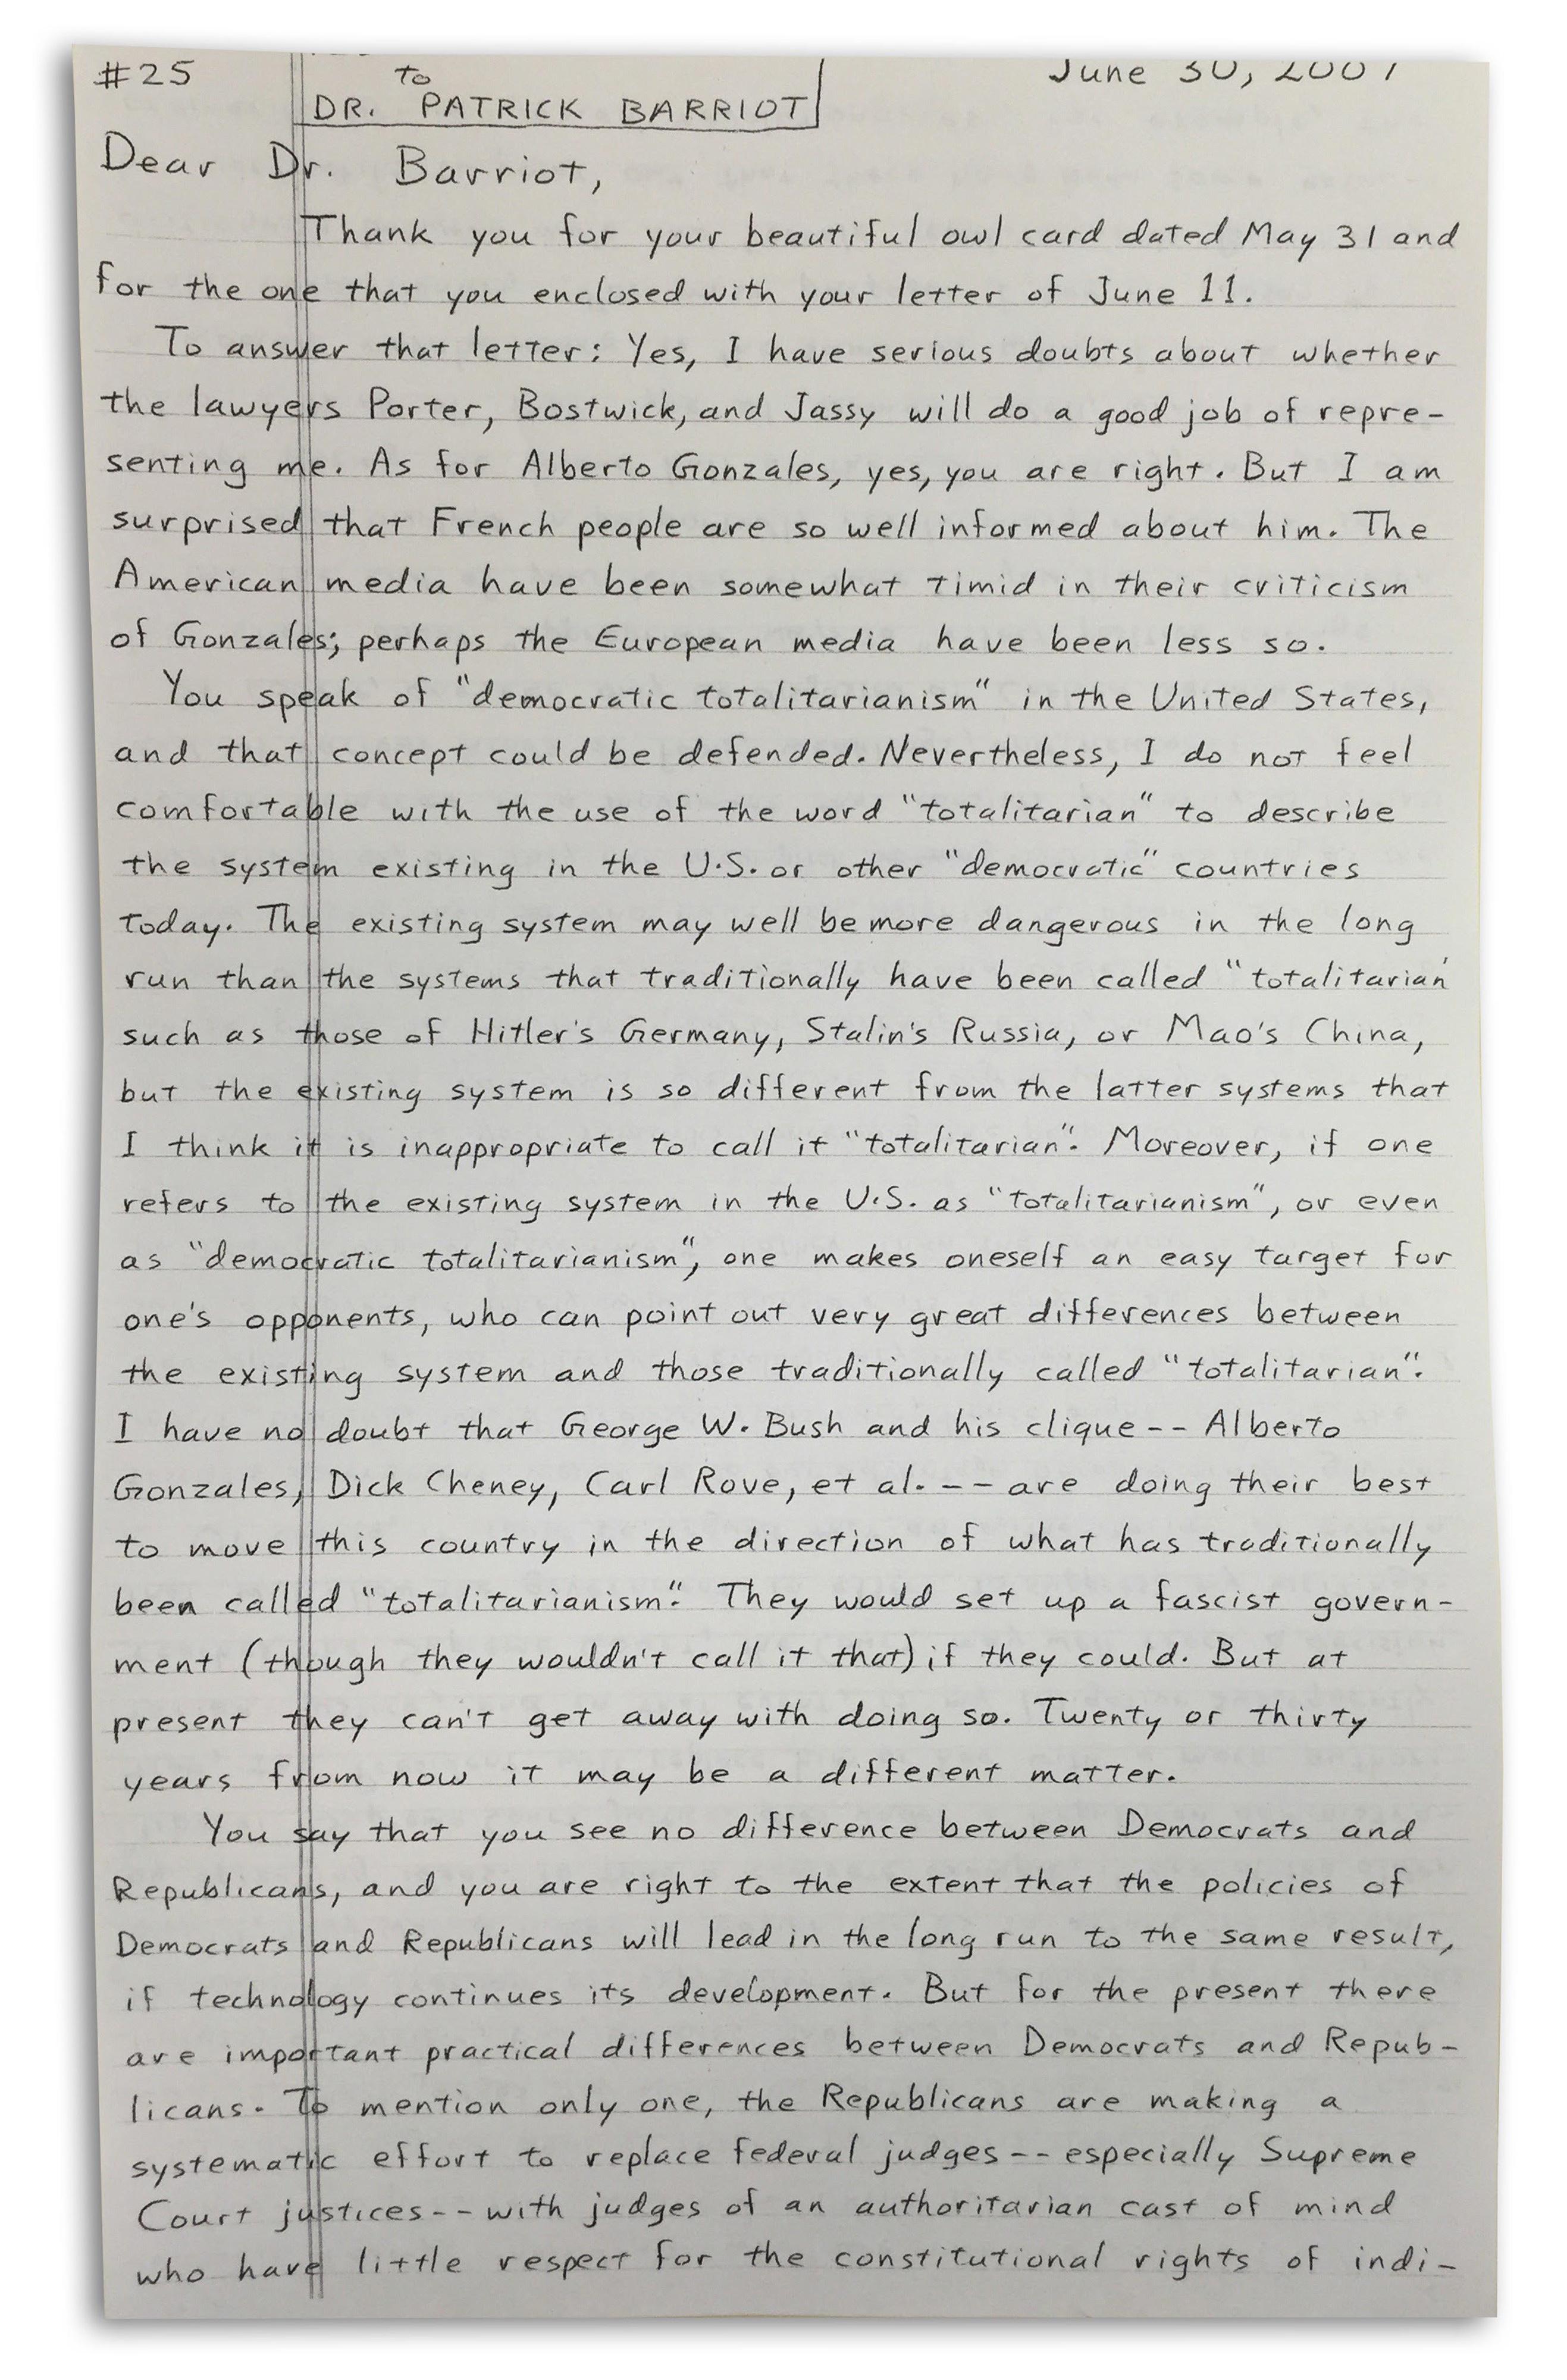 #25
to
June 30, 2007
DR. PATRICK BARRIOT
Dear Dr. Barriot,
Thank you for your beautiful owl card dated May 31 and
for the one that you enclosed with your letter of June 11.
To answer that letter: Yes, I have serious doubts about whether
the lawyers Porter, Bostwick, and Jassy will do a good job of repre-
senting me. As for Alberto Gonzales, yes, you are right. But I am
surprised that French people are so well informed about him. The
American media have been somewhat timid in their criticism
of Gonzales; perhaps the European media have been less so.
You speak of "democratic totalitarianism" in the United States,
and that concept could be defended. Nevertheless, I do not feel
comfortable with the use of the word "totalitarian" to describe
the system existing in the U.S. or other "democratic" countries
today. The existing system may well be more dangerous in the long
run than the systems that traditionally have been called "totalitarian"
such as those of Hitler's Germany, Stalin's Russia, or Mao's China,
but the existing system is so different from the latter systems that
I think it is inappropriate to call it "totalitarian". Moreover, if one
refers to the existing system in the U.S. as "totalitarianism", or even
as "democratic totalitarianism", one makes oneself an easy target for
one's opponents, who can point out very great differences between
the existing system and those traditionally called "totalitarian".
I have no doubt that George W. Bush and his clique -- Alberto
Gonzales, Dick Cheney, Carl Rove, et al. -- are doing their best
to move this country in the direction of what has traditionally
been called "totalitarianism". They would set up a fascist govern-
ment (though they wouldn't call it that) if they could. But at
present they can't get away with doing so. Twenty or thirty
years from now it may be a different matter.
You say that you see no difference between Democrats and
Republicans, and you are right to the extent that the policies of
Democrats and Republicans will lead in the long run to the same result,
if technology continues its development. But for the present there
are important practical differences between Democrats and Repub-
licans. To mention only one, the Republicans are making a
systematic effort to replace federal judges -- especially Supreme
Court justices -- with judges of an authoritarian cast of mind
who have little respect for the constitutional rights of indi-